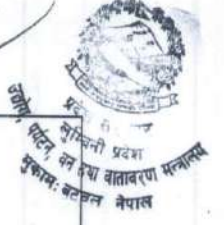 प्रदेश
लुम्बिनी प्रदेश
उद्योग, पर्यटन, वन तथा वातावरण मन्त्रालय
मुकाम: बुटवल नेपाल